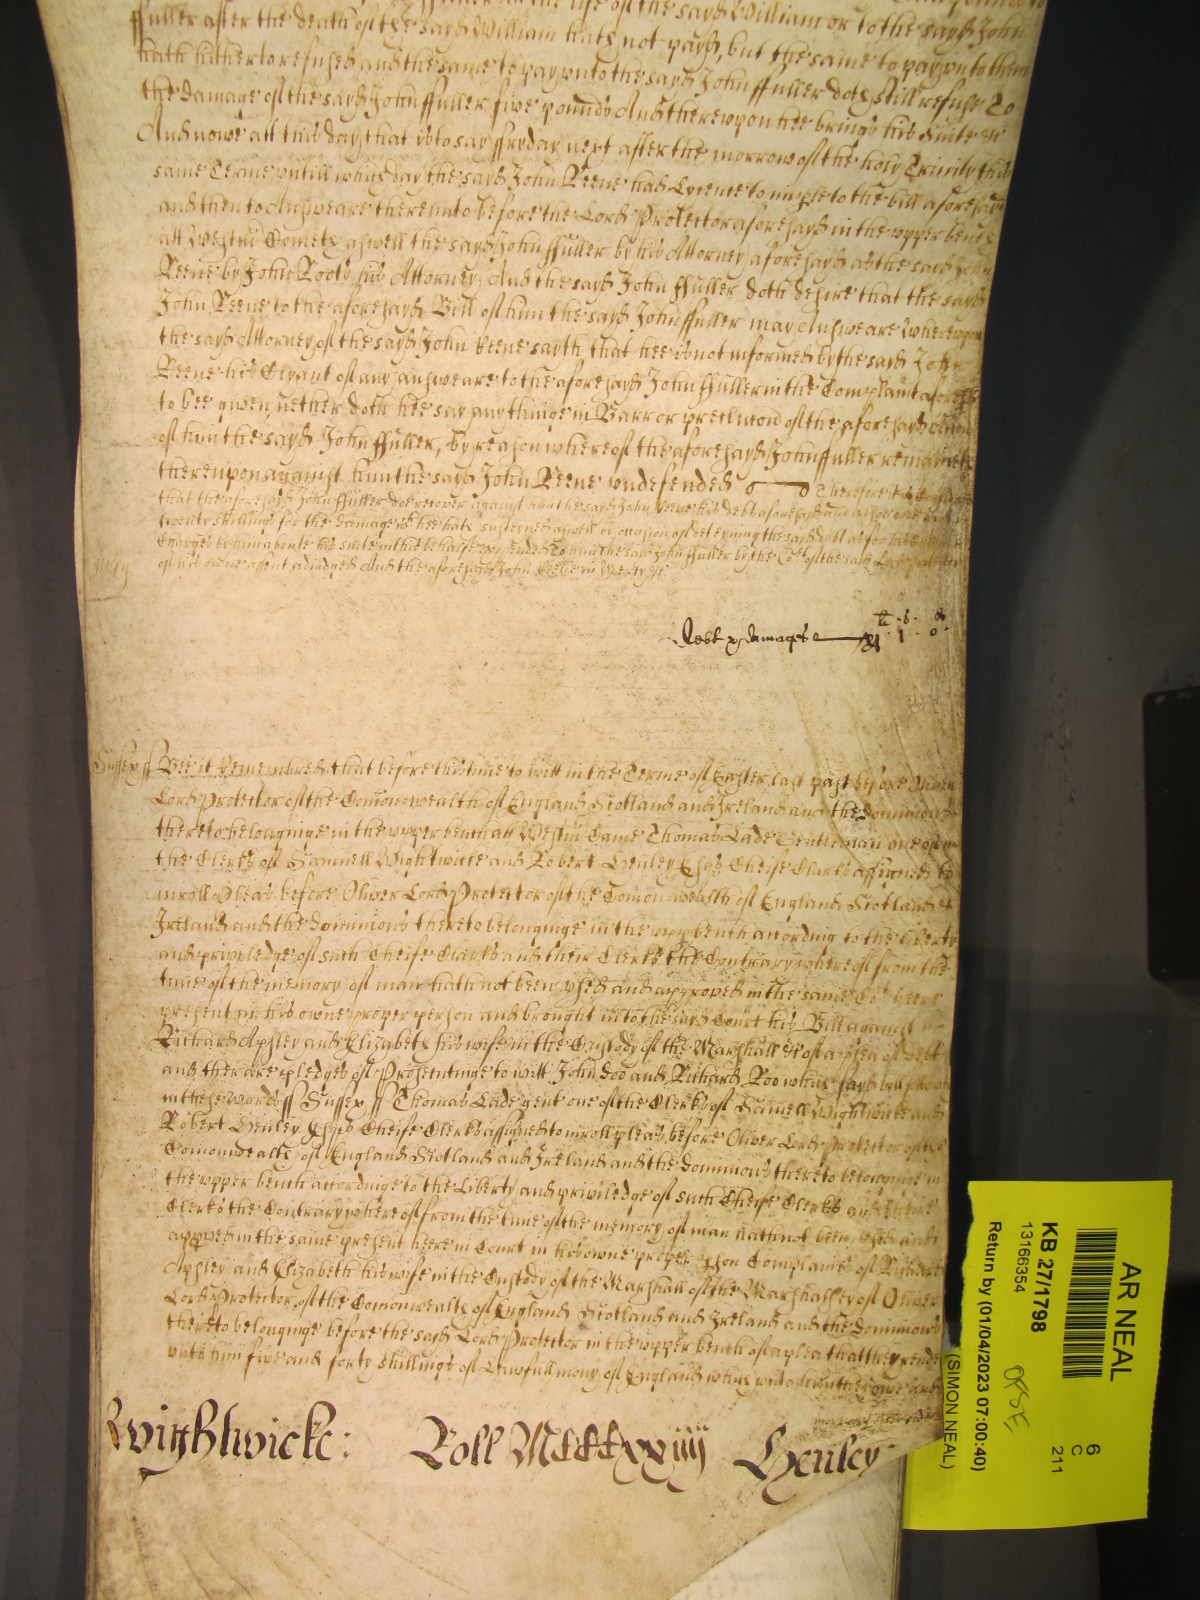 in the life of the sayd William or to the sayd John
ffuller after the death of the sayd William hath not payd, but the same to pay vnto them
hath hitherto refused and the same to pay vnto the sayd John ffuller doth still refuse To
the damage of the sayd John ffuller five pounds And therevpon hee brings his suite &c
And nowe att this day that is to say ffryday next after the morrow of the holy Trinity this
same Terme vntill which day the sayd John Keene had Lycence to imple to the bill aforesayd
and then to Answeare therevnto before the Lord Protector aforesayd in the vpper bench
att Westmr Cometh aswell the sayd John ffuller by his Attorney aforesayd as the sayd John
Keene by John Roots his Attorney, And the sayd John ffuller doth desire that the sayd
John Keene to the aforesayd Bill of him the sayd John ffuller may Answeare Wherevpon
the sayd Attorney of the sayd John Keene sayth that hee is not informed by the sayd John
Keene his Clyant of any answeare to the aforesayd John ffuller in the Complaint aforesd
to bee given, nether doth hee say any thinge in Barr or preclucon of the aforesayd accon
of him the sayd John ffuller, by reason whereof the aforesayd John ffuller remaineth
therevpon against him the sayd John Keene vndefended Therefore it is
that the aforesayd John ffuller doe recover against him the sayd John Keene his debt aforesayd and alsoe
twenty shillings for the damages wch hee hath susteyned aswell by occasion of deteyning the sayd debt as for his
Charges by him aboute his suite in this behalfe expended To him the sayd John ffuller by the Cort of the sayd Lord Protector
of his owne assent adiudged And the aforesayd John Keene in Mercy &c
Mercy
li s d
debt & damages xxi 1 0
Sussex ss Bee it Remembred that before this time to witt in the Terme of Easter last past before Oliver
Lord Protector of the Comonwealth of England Scotland and Ireland and the dominions
thereto belonginge in the vpper bench att Westmr Came Thomas Lade Gentleman one of
the Clerks of Samuell Wightwicke and Robert Henley Esqs Cheife Clarks assigned to
inroll Pleas before Oliver Lord Protector of the Comonwealth of England Scotland &
Ireland and the dominions thereto belonginge in the vpp bench according to the liberty
and priviledge of such Cheife Clarks and their Clerks the Contrary whereof from the
time of the memory of man hath not been vsed and approved in the same Cort heere
present in his owne proper person and brought into the sayd Court his Bill against
Richard Apsley and Elizabeth his wife in the Custody of the Marshall &c of a plea of debt
and there are pledges of Prosecutinge to witt John Doo and Richard Roo which sayd bill followes
in these words ss Sussex ss Thomas Lade gent one of the Clerks of Samuell Wightwicke and
Robert Henley Esqs Cheife Clerks assigned to inroll pleas before Oliver Lord Protector of the
Comonwealth of England Scotland and Ireland and the dominions thereto belonginge in
the vpper bench accordinge to the Liberty and priviledge of such Cheife Clerks and theire
Clerks the Contrary whereof from the time of the memory of man hath not been vsed and
appved in the same present heere in Court in his owne proper pson Complaines of Richard
Apsley and Elizabeth his wife in the Custody of the Marshall of the Marshalsey of Oliver
Lord Protector of the Comonwealth of England Scotland and Ireland and the dominions
thereto belonginge before the sayd Lord Protector in the vpper bench of a plea that they render
vnto him five and forty shillings of Lawfull mony of England which vnto him they owe and
Wightwicke: Roll MCCCCxxiiij Henley
AR NEAL
KB 27/1798
13166354
Return by (01/04/2023 07:00:40)
(SIMON NEAL)
6
C
211